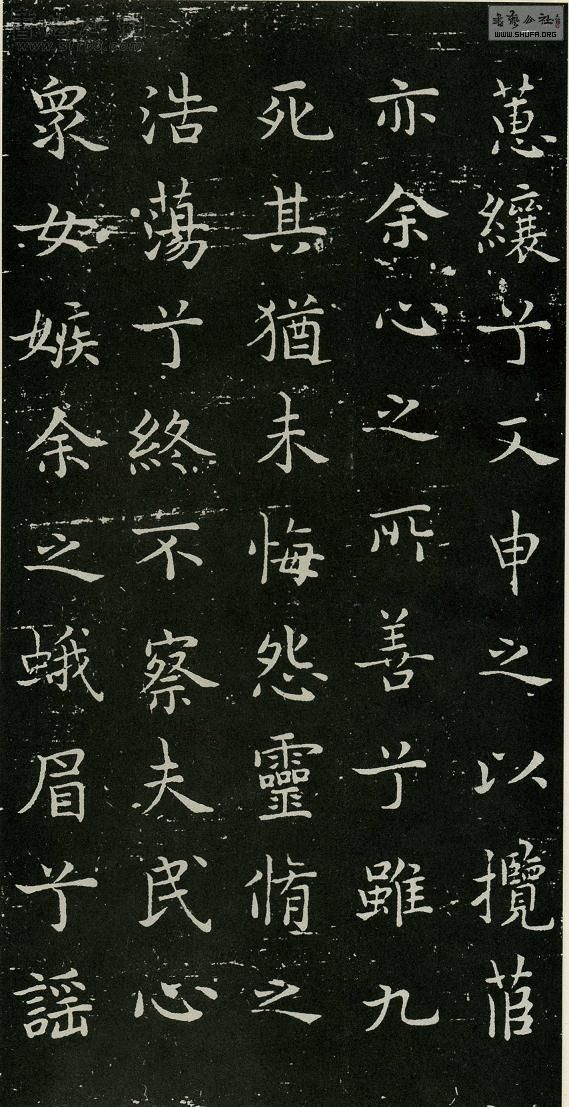 蕙纕兮又申之以攬茝
亦余心之所善兮雖九
死其猶未悔怨靈脩之
浩蕩兮終不察夫民心
衆女嫉余之蛾眉兮謠
WWW.SHUFA.ORG